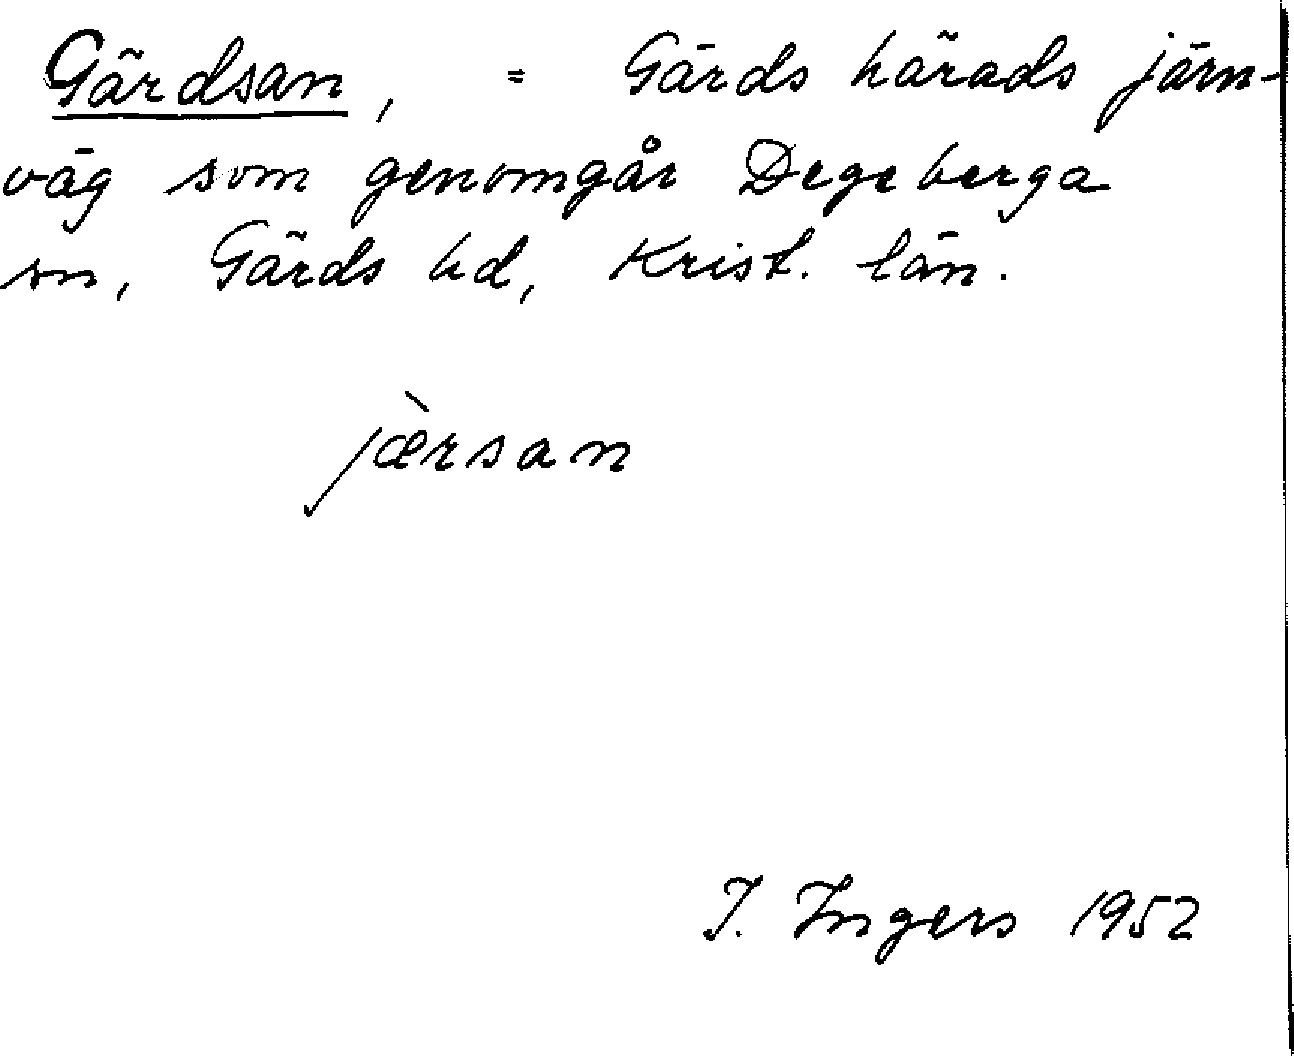 Gärdsan, = Gärds härads järn-
väg som genomgår Degeberga
sn, Gärds hd, Krist. län.
jæ̀rsan
I. Ingers 1952